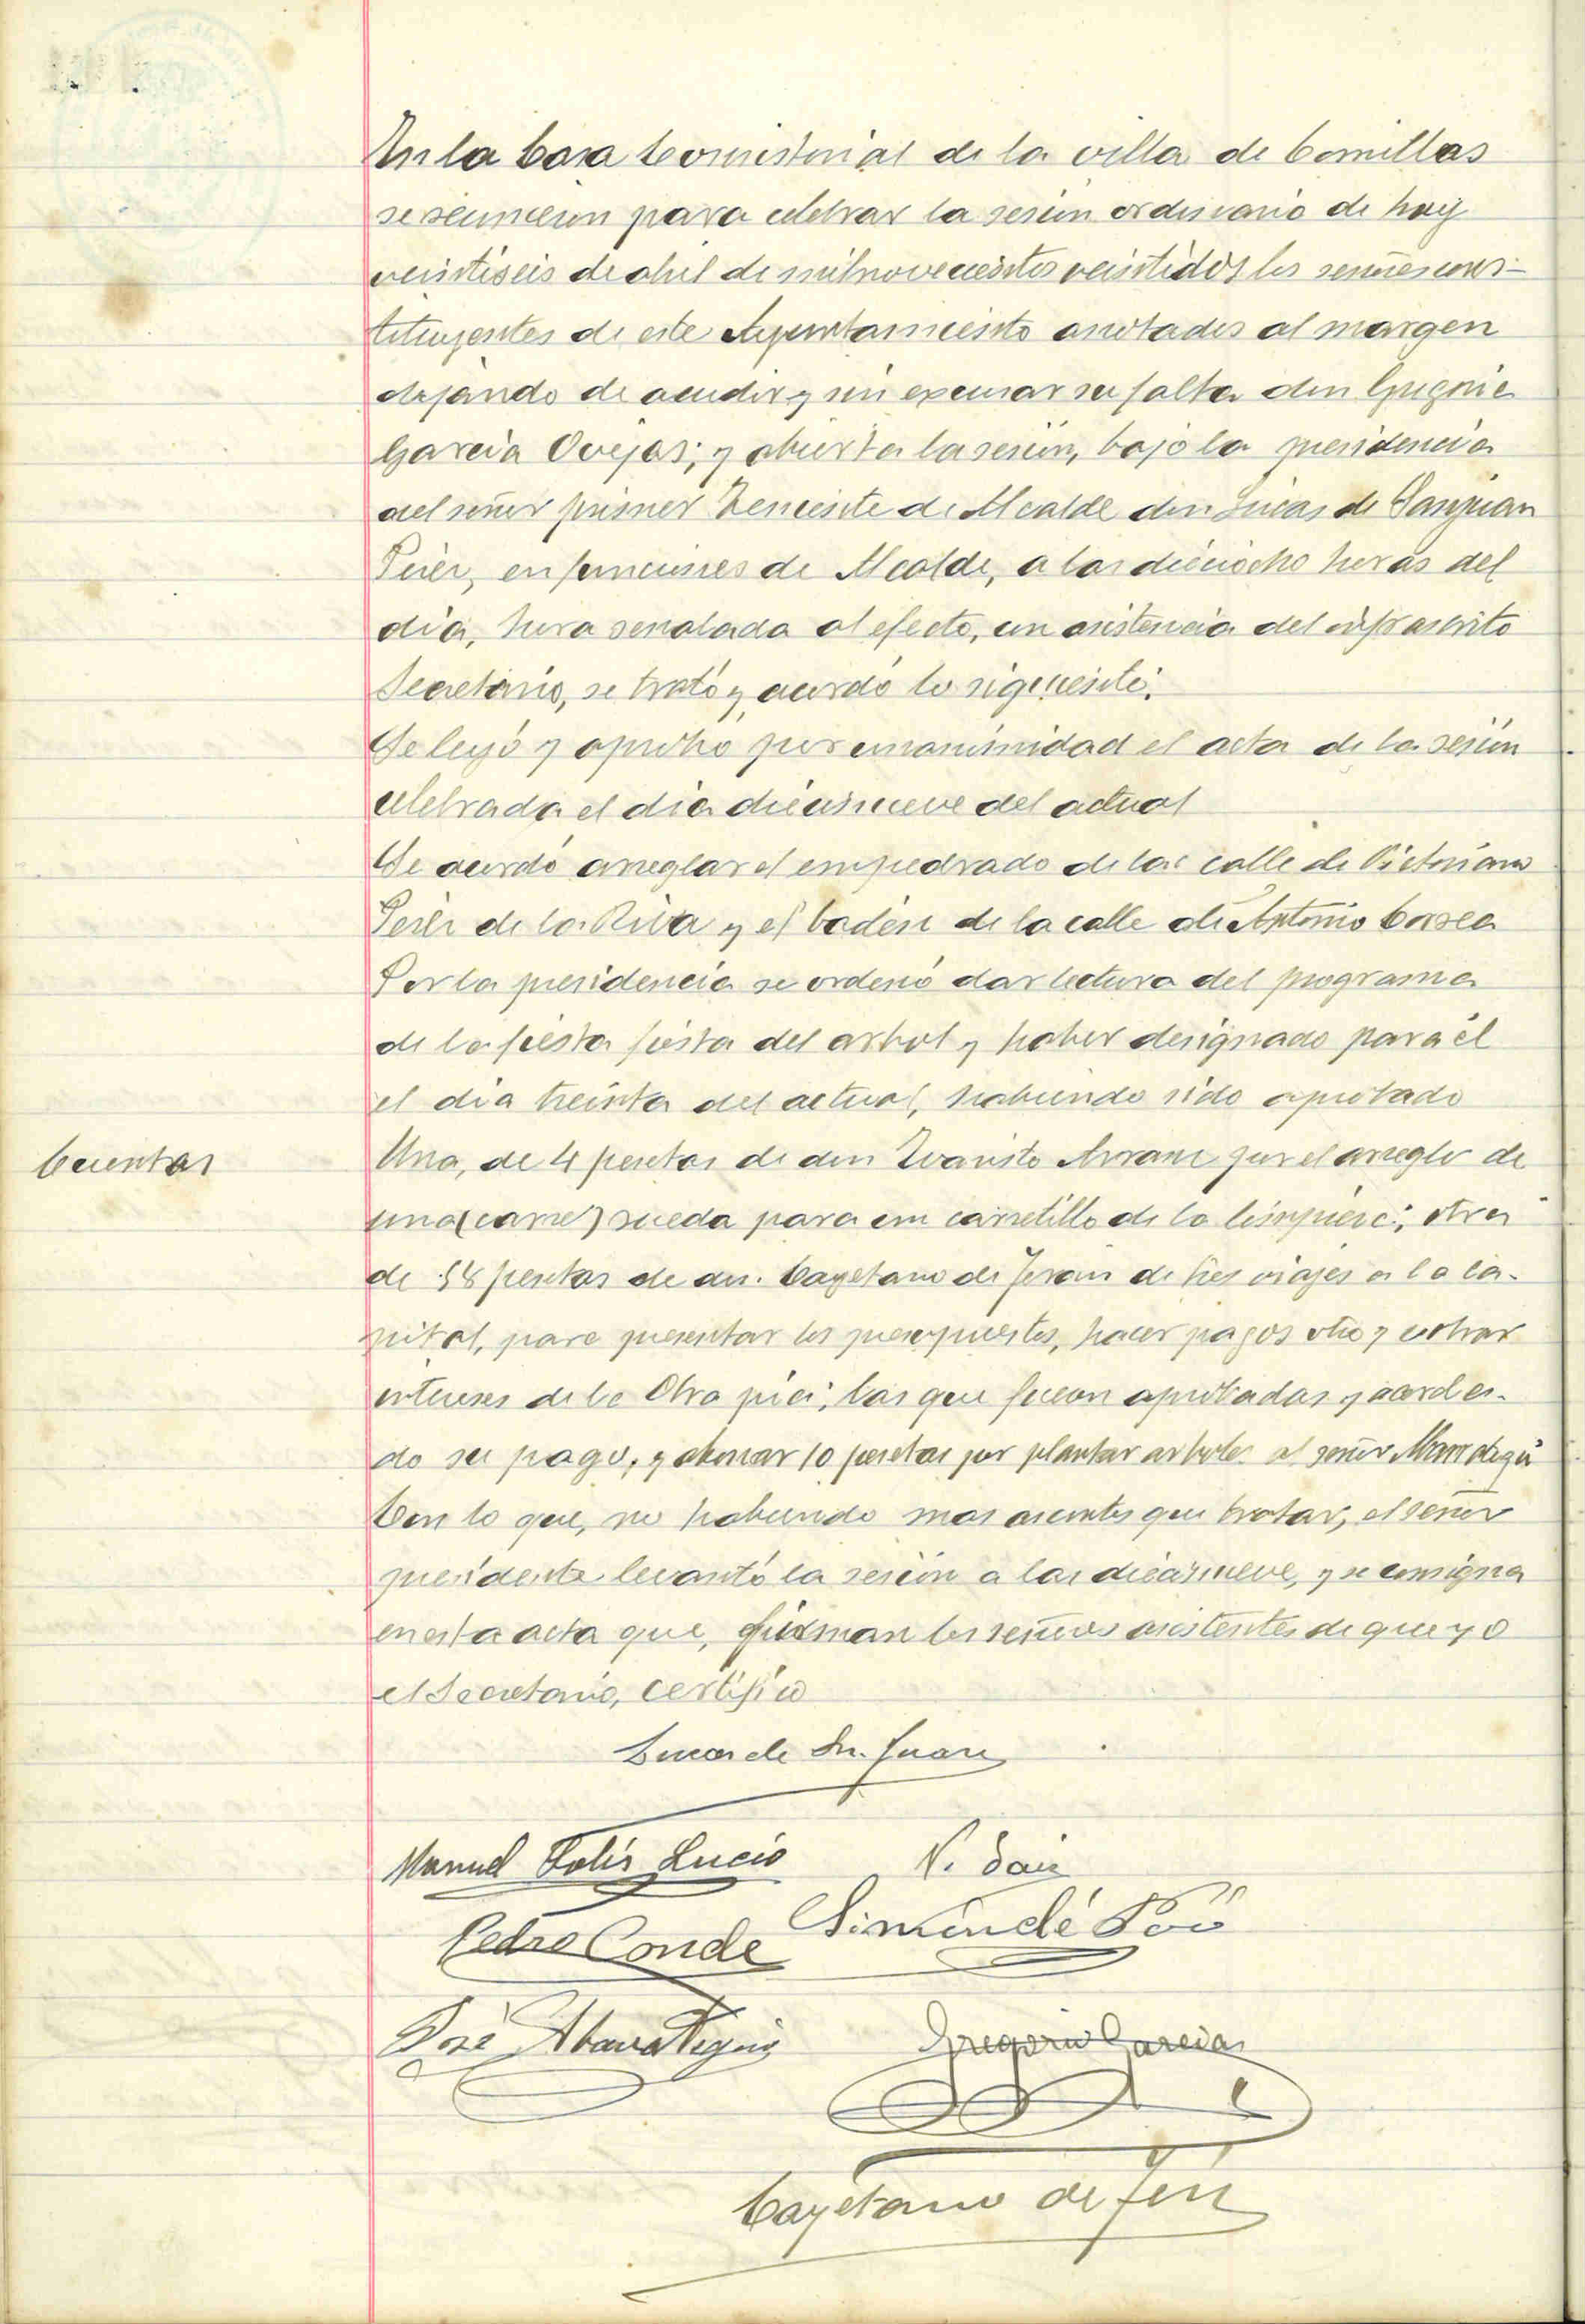 En la Casa Consistorial de la villa de Comillas
se reunieron para celebrar la sesion ordinaria de hoy
veintiseis de abril de mil novecientos veintidos los señores cons-
tituyentes de este Ayuntamiento anotados al margen
dejando de acudir y sin excusar su falta don Gregorio
Garcia Ovejas; y abierta la sesion, bajo la presidencia
del señor primer Teniente de Alcalde don Lucas de Sanjuan
Perez, en funciones de Alcalde, a las dieciocho horas del
dia, hora señalada al efecto, con asistencia del infrascrito
Secretario, se trató y acordó lo siguiente:
Se leyó y aprobó por unanimidad el acta de la sesion
celebrada el dia diecinueve del actual
Se acordó arreglar el empedrado de la calle de Victoriano
Perez de la Riva y el badén de la calle de Antonio
Por la presidencia se ordenó dar lectura del programa
de la fiesta fiesta del arbol y haber designado para él
el dia treinta del actual, habiendo sido aprobado
Cuentas
Una, de 4 pesetas de don Evaristo por el arreglo de
una (carre) rueda para un carretillo de la limpieza; otra
de 58 pesetas de don Cayetano de de tres viajes a la ca-
pital, para presentar los presupuestos, hacer pagos otro y cobrar
intereses de la Obra pia; las que fueron aprobadas y acorda-
do su pago, y abonar 10 pesetas por plantar arboles al señor
Con lo que, no habiendo mas asuntos que tratar, el señor
presidente levantó la sesion a las diecinueve, y se consigna
en esta acta que, firman los señores asistentes de que yo
el Secretario, certifico
Lucas de Sn. Juan
Manuel Solis Lucio
N.
Pedro Conde
José
Gregorio Garcia
Cayetano de